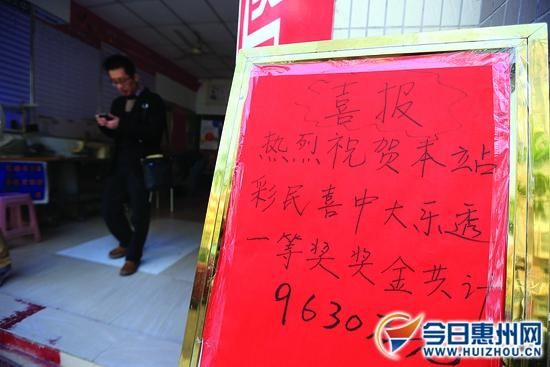 喜报
热烈祝贺本站
彩民喜中大乐透
一等奖奖金共计
9630万元
今日惠州网
WWW.HUIZHOU.CN